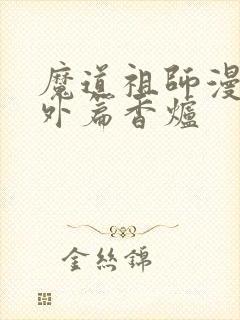 魔道祖師漫
外篇香爐
金絲錦